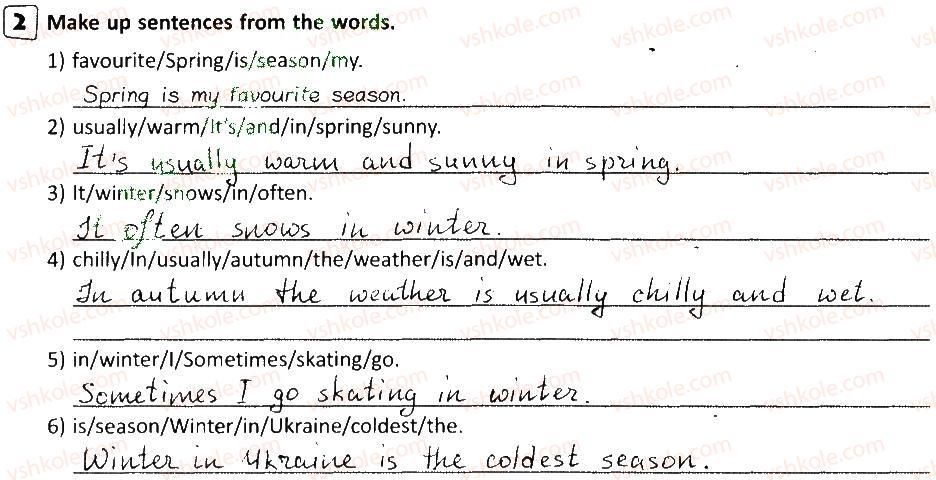 2 Make up sentences from the words.
1) favourite/Spring/is/season/my.
Spring is my favourite season.
2) usually/warm/It's/and/in/spring/sunny.
It's usually warm and sunny in spring.
3) It/winter/snows/in/often.
It often snows in winter.
4) chilly/In/usually/autumn/the/weather/is/and/wet.
In autumn the weather is usually chilly and wet.
5) in/winter/I/Sometimes/skating/go.
Sometimes I go skating in winter.
6) is/season/Winter/in/Ukraine/coldest/the.
Winter in Ukraine is the coldest season.
vshkole.com